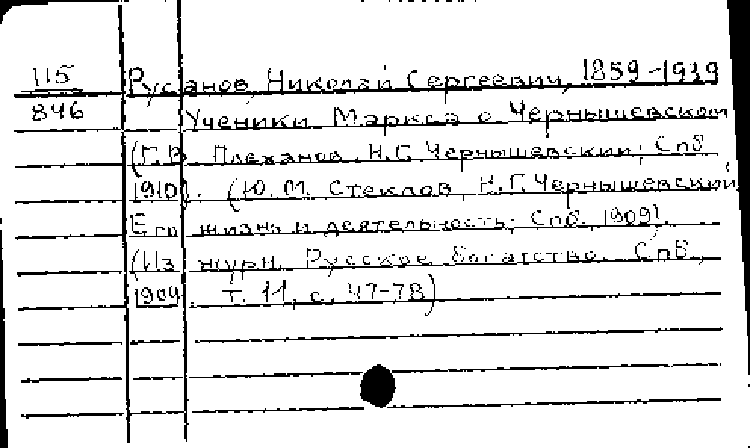 115
846
Русанов, Николай Сергеевич, 1859-1939
Ученики Маркса о Чернышевском
(Г.В. Плеханов. Н.Г. Чернышевский; Спб
1910). (Ю. М. Стеклов, Н.Г. Чернышевский
Его жизнь и деятельность; Спб, 1909).
(Из журн. Русское богатство. Спб,
1909. Т. 11, с. 47-78)